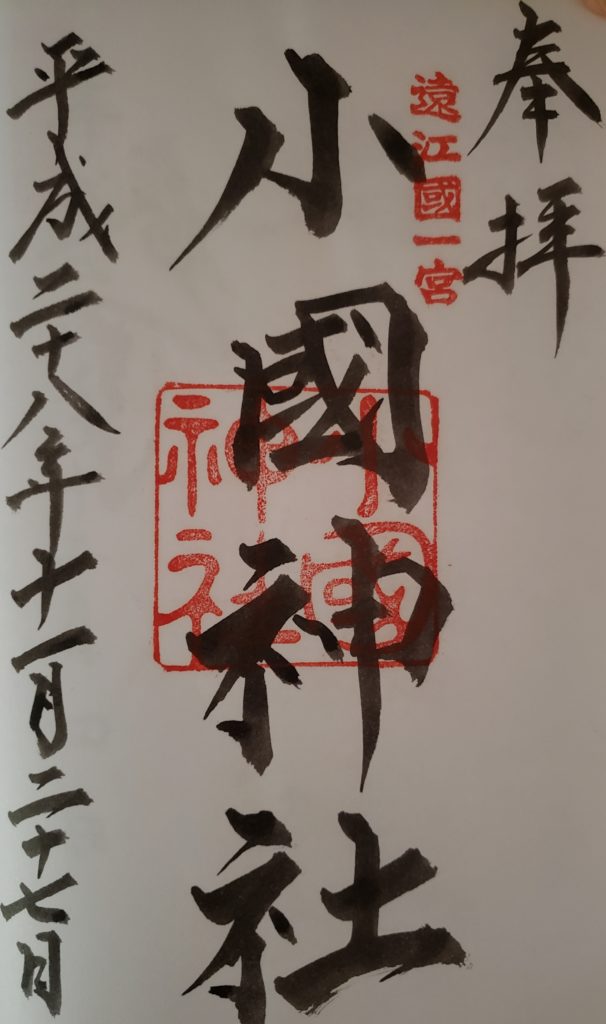 奉拝
遠江國一宮
小國神社
小國神社
平成二十八年十一月二十七日